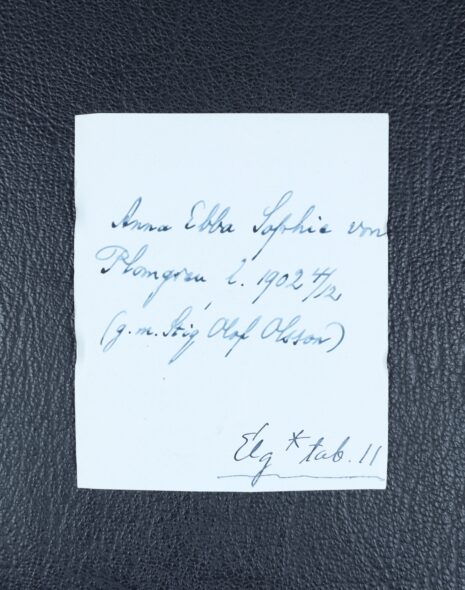 Anna Ebba Sophie von
Plomgren f. 1902 4/12
(g.m. Stig Olof Olsson)
Elg * tab. 11